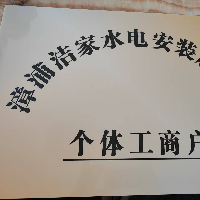 漳浦洁家水电安装
个体工商户